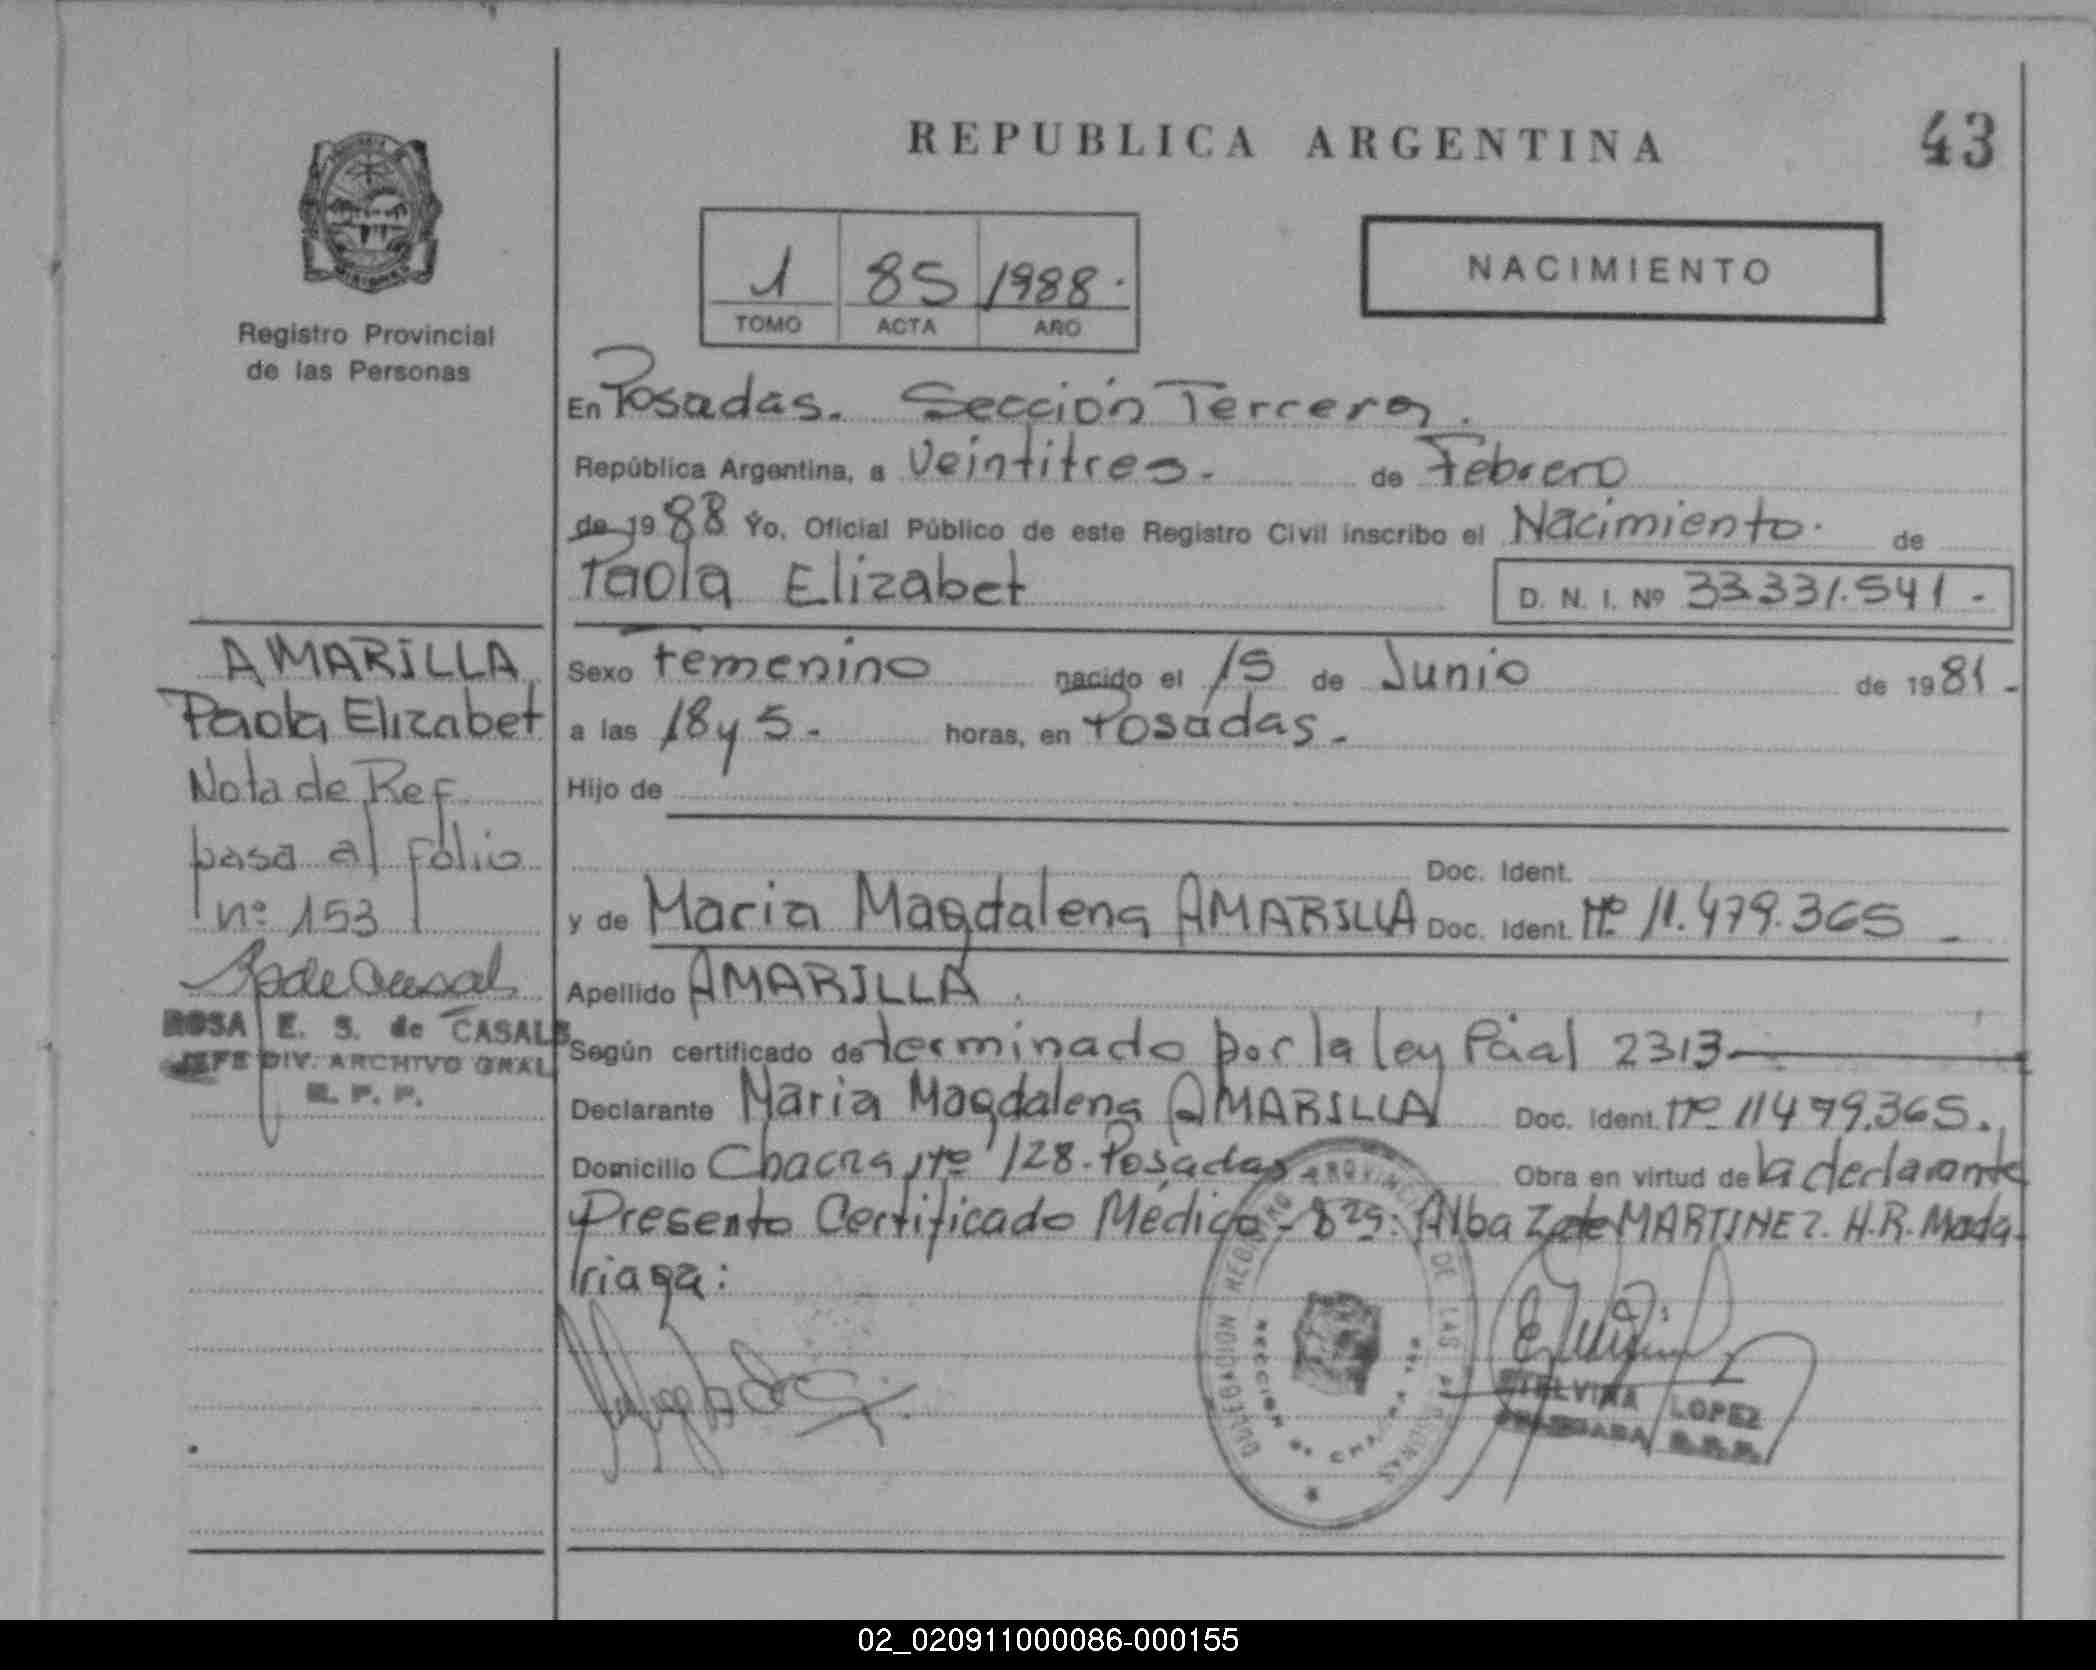 REPUBLICA ARGENTINA
43
Registro Provincial
de las Personas
1 85 1988.
TOMO ACTA AÑO
NACIMIENTO
En Posadas. Sección Tercera.
República Argentina, a veintitres. de Febrero
de 1988 Yo, Oficial Público de este Registro Civil inscribo el Nacimiento. de
Paola Elizabet D. N. I. Nº 33.331.541.-
AMARILLA
Paola Elizabet
Nota de Ref
pasa al folio
nº 153
ROSA E. S. de CASALS
JEFE DIV. ARCHIVO GRAL
R. P. P.
Sexo Femenino nacido el 15 de Junio de 1981.-
a las 18 y 5.- horas, en Posadas.-
Hijo de
Doc. Ident.
y de Maria Magdalena AMARILLA Doc. Ident. Nº 11.479.365 -
Apellido AMARILLA.
Según certificado determinado por la ley Pcial 2313
Declarante Maria Magdalena AMARILLA Doc. Ident. Nº 11479.365.
Domicilio Chacra Nº 128. Posadas Obra en virtud de la declarante
Presento Certificado Médico - Alba MARTINEZ. H.R. Mada-
riaga:
DE LAS
LOPEZ
02_020911000086-000155